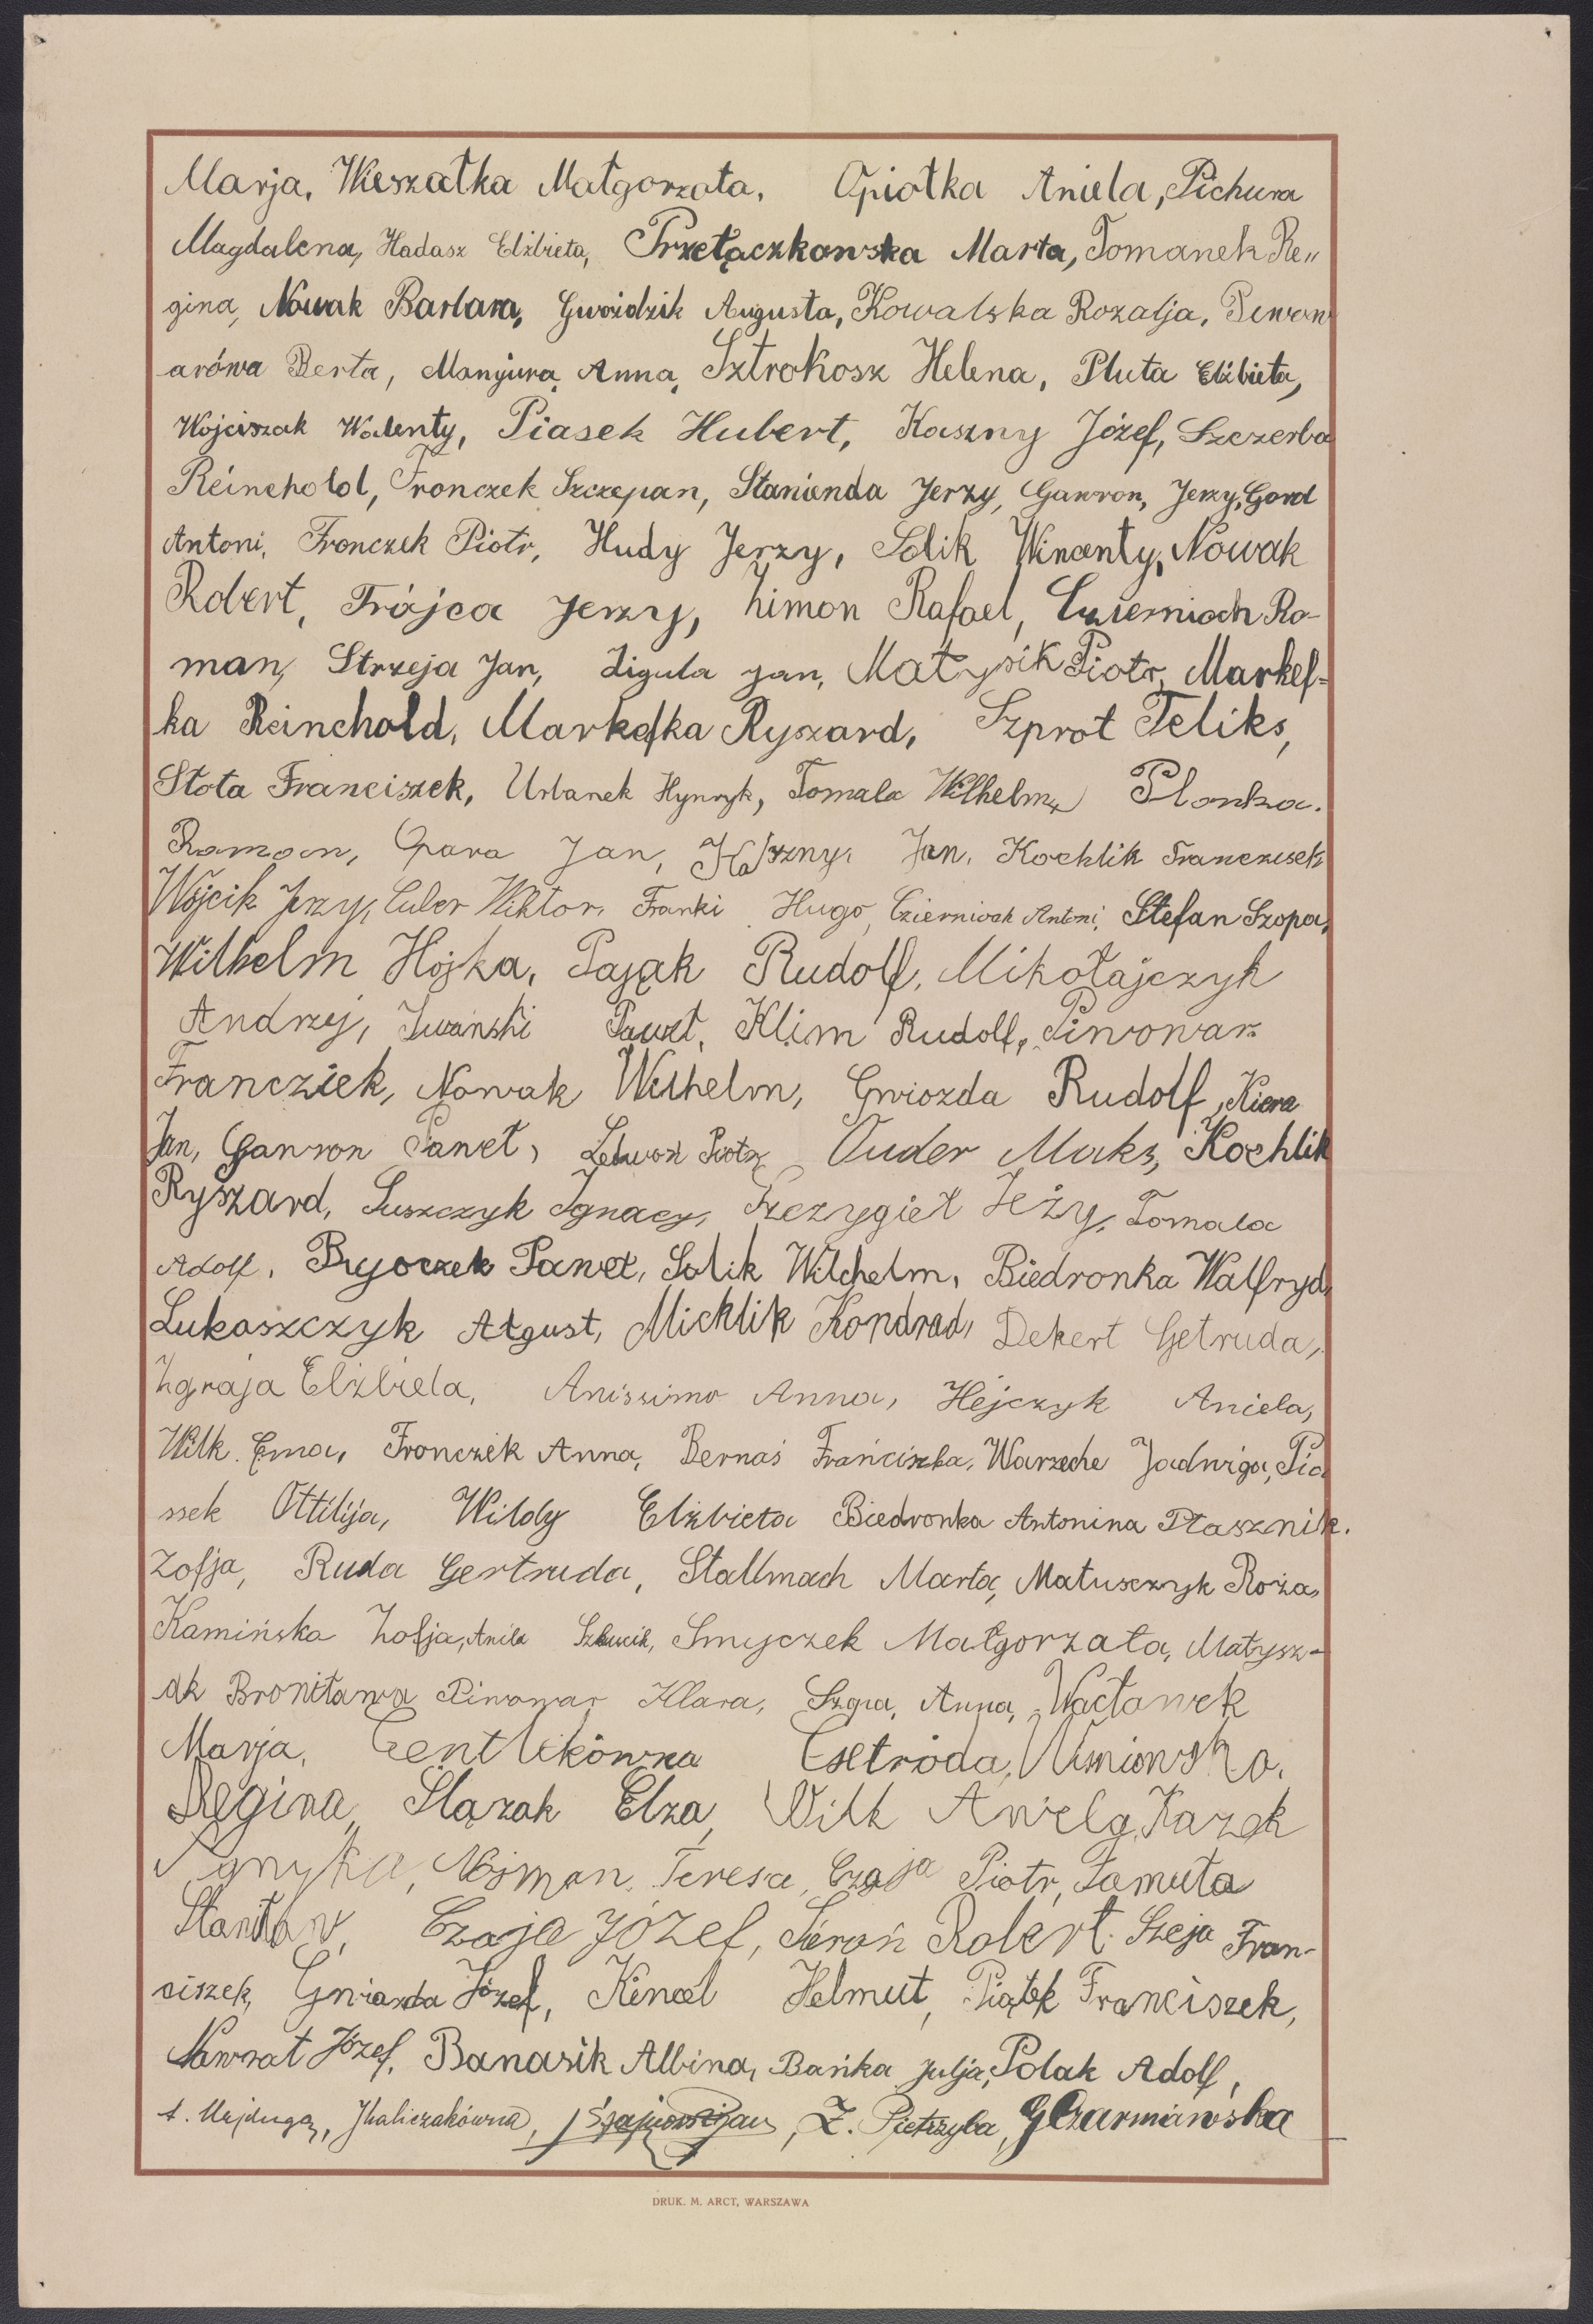 Marja, Wieszałka Małgorzata, Opiołka Aniela, Pichura
Magdalena, Hadasz Elżbieta, Przełączkowska Marta, Tomanek Re„
gina, Nowak Barbara, Gwoździk Augusta, Kowalska Rozalja, Piwow
arówa Berta, Manjura, Anna, Sztrokosz Helena, Pluta Elżbieta,
Wojciszak Walenty, Piasek Hubert, Kaszny Józef, Szczerba
Reinehold, Fronczek Szczepan, Stanienda Jerzy, Gawron, Jerzy, Gord
Antoni, Fronczek Piotr, Hudy Jerzy, Solik Wincenty, Nowak
Robert, Trójca Jerzy, Zimon Rafael, Czierniach Ro-
man, Strzeja Jan, Ligula Jan, Matysik Piotr, Markef-
ka Reinchold, Markefka Ryszard, Szprot Feliks,
Stota Franciszek, Urbanek Hynryk, Tomala Wilhelm, Plonka.
Roman, Opara Jan, Kaszny, Jan, Kochlik Franczisek
Wójcik Jerzy, Culer Wiktor, Franki Hugo, Cziernioch Antoni, Stefan Szopa,
Wilhelm Hojka, Pająk Rudolf, Mikołajczyk
Andrzej, Iwański Paweł, Klim Rudolf, Piwowarz
Francziek, Nowak Wilhelm, Gwiozda Rudolf, Kiera
Jan, Gawron Paweł, Piotr, Ouder Maks, Kochlik
Ryszard, Suszczyk Ignacy, Szczygieł Jeży, Tomala
Adolf, Pryoczek Paweł, Solik Wilchelm, Biedronka Walfryd,
Lukaszczyk Algust, Micklik Kondrad, Dekert Getruda,
Zgraja Elżbiela, Anissimo Anna, Hejczyk Aniela,
Wilk Ema, Fronczek Anna, Bernaś Franciszka, Warzeche Jadwiga, Pia
ssek Ottilija, Wildy Elżbieta Biedronka Antonina Ptasznik.
Zofja, Ruda Gertruda, Stallmach Marta, Matusczyk Roża,
Kamińska Zofja, Anila Smyczek Małgorzata, Matysz-
ak Broniława Piwowar Klara, Szga, Anna, Wacławek
Marja, Gentlikówna Getroda,
Regina, Ślązak Elza, Wilk Anielg, Kazek
Agnyka, Nojman, Teresa, Czaja Piotr, Famuła
Czaja Józef, Sieroń Robert. Szeja Fran-
ciszek, Gwiazda Józef, Kincel Helmut, Piątek Franciszek,
Nawrat Józef, Banasik Albina, Bańka Julja, Polak Adolf,
Z. Pietrzyba, GCzarmańska
DRUK. M. ARCT, WARSZAWA